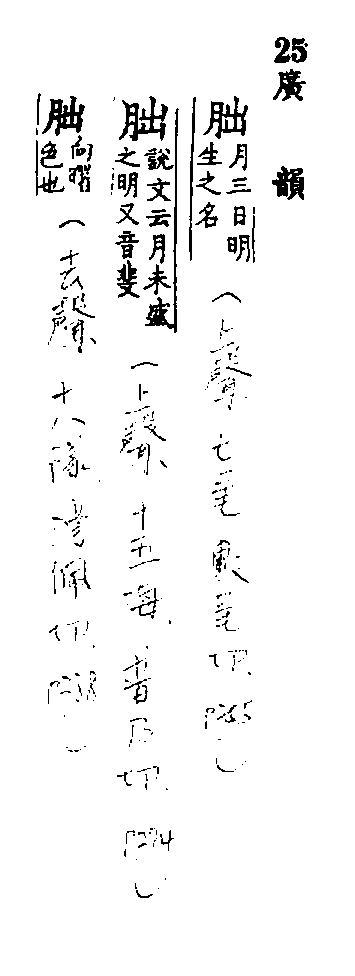 25廣韻
朏月三日明
生之名
(上聲七尾敷尾切P255)
朏說文云月未盛
之明又音斐
(上聲十五海普乃切P274)
朏向曙
色也
(去聲十八隊滂佩切P388)